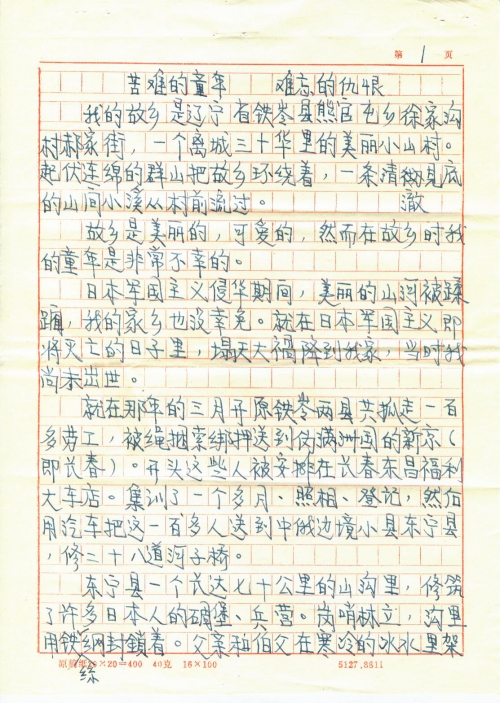 第 1 页
苦难的童年 难忘的仇恨
我的故乡是辽宁省铁岭县熊官屯乡徐家沟
村郝家街，一个离城三十华里的美丽小山村。
起伏连绵的群山把故乡环绕着，一条清澈见底
的山间小溪从村前流过。
澈
故乡是美丽的，可爱的，然而在故乡时我
的童年是非常不幸的。
日本军国主义侵华期间，美丽的山河被蹂
躏，我的家乡也没幸免。就在日本军国主义即
将灭亡的日子里，塌天大禍降到我家，当时我
尚未出世。
就在那年的三月开原铁岑两县共抓走一百
多劳工，被绳捆索绑押送到伪满洲国的新京（
即长春）。开头这些人被安排在长春东昌福利
大车店。集训了一个多月、照相、登记，然后
用汽车把这一百多人送到中俄边境小县东宁县
，修二十八道河子桥。
东宁县一个长达七十公里的山沟里，修筑
了许多日本人的碉堡、兵营。岗哨林立，沟里
用铁网封鎖着。父亲和伯父在寒冷的冰水里架
丝
20×20=400 40克 16×100
5127.8811